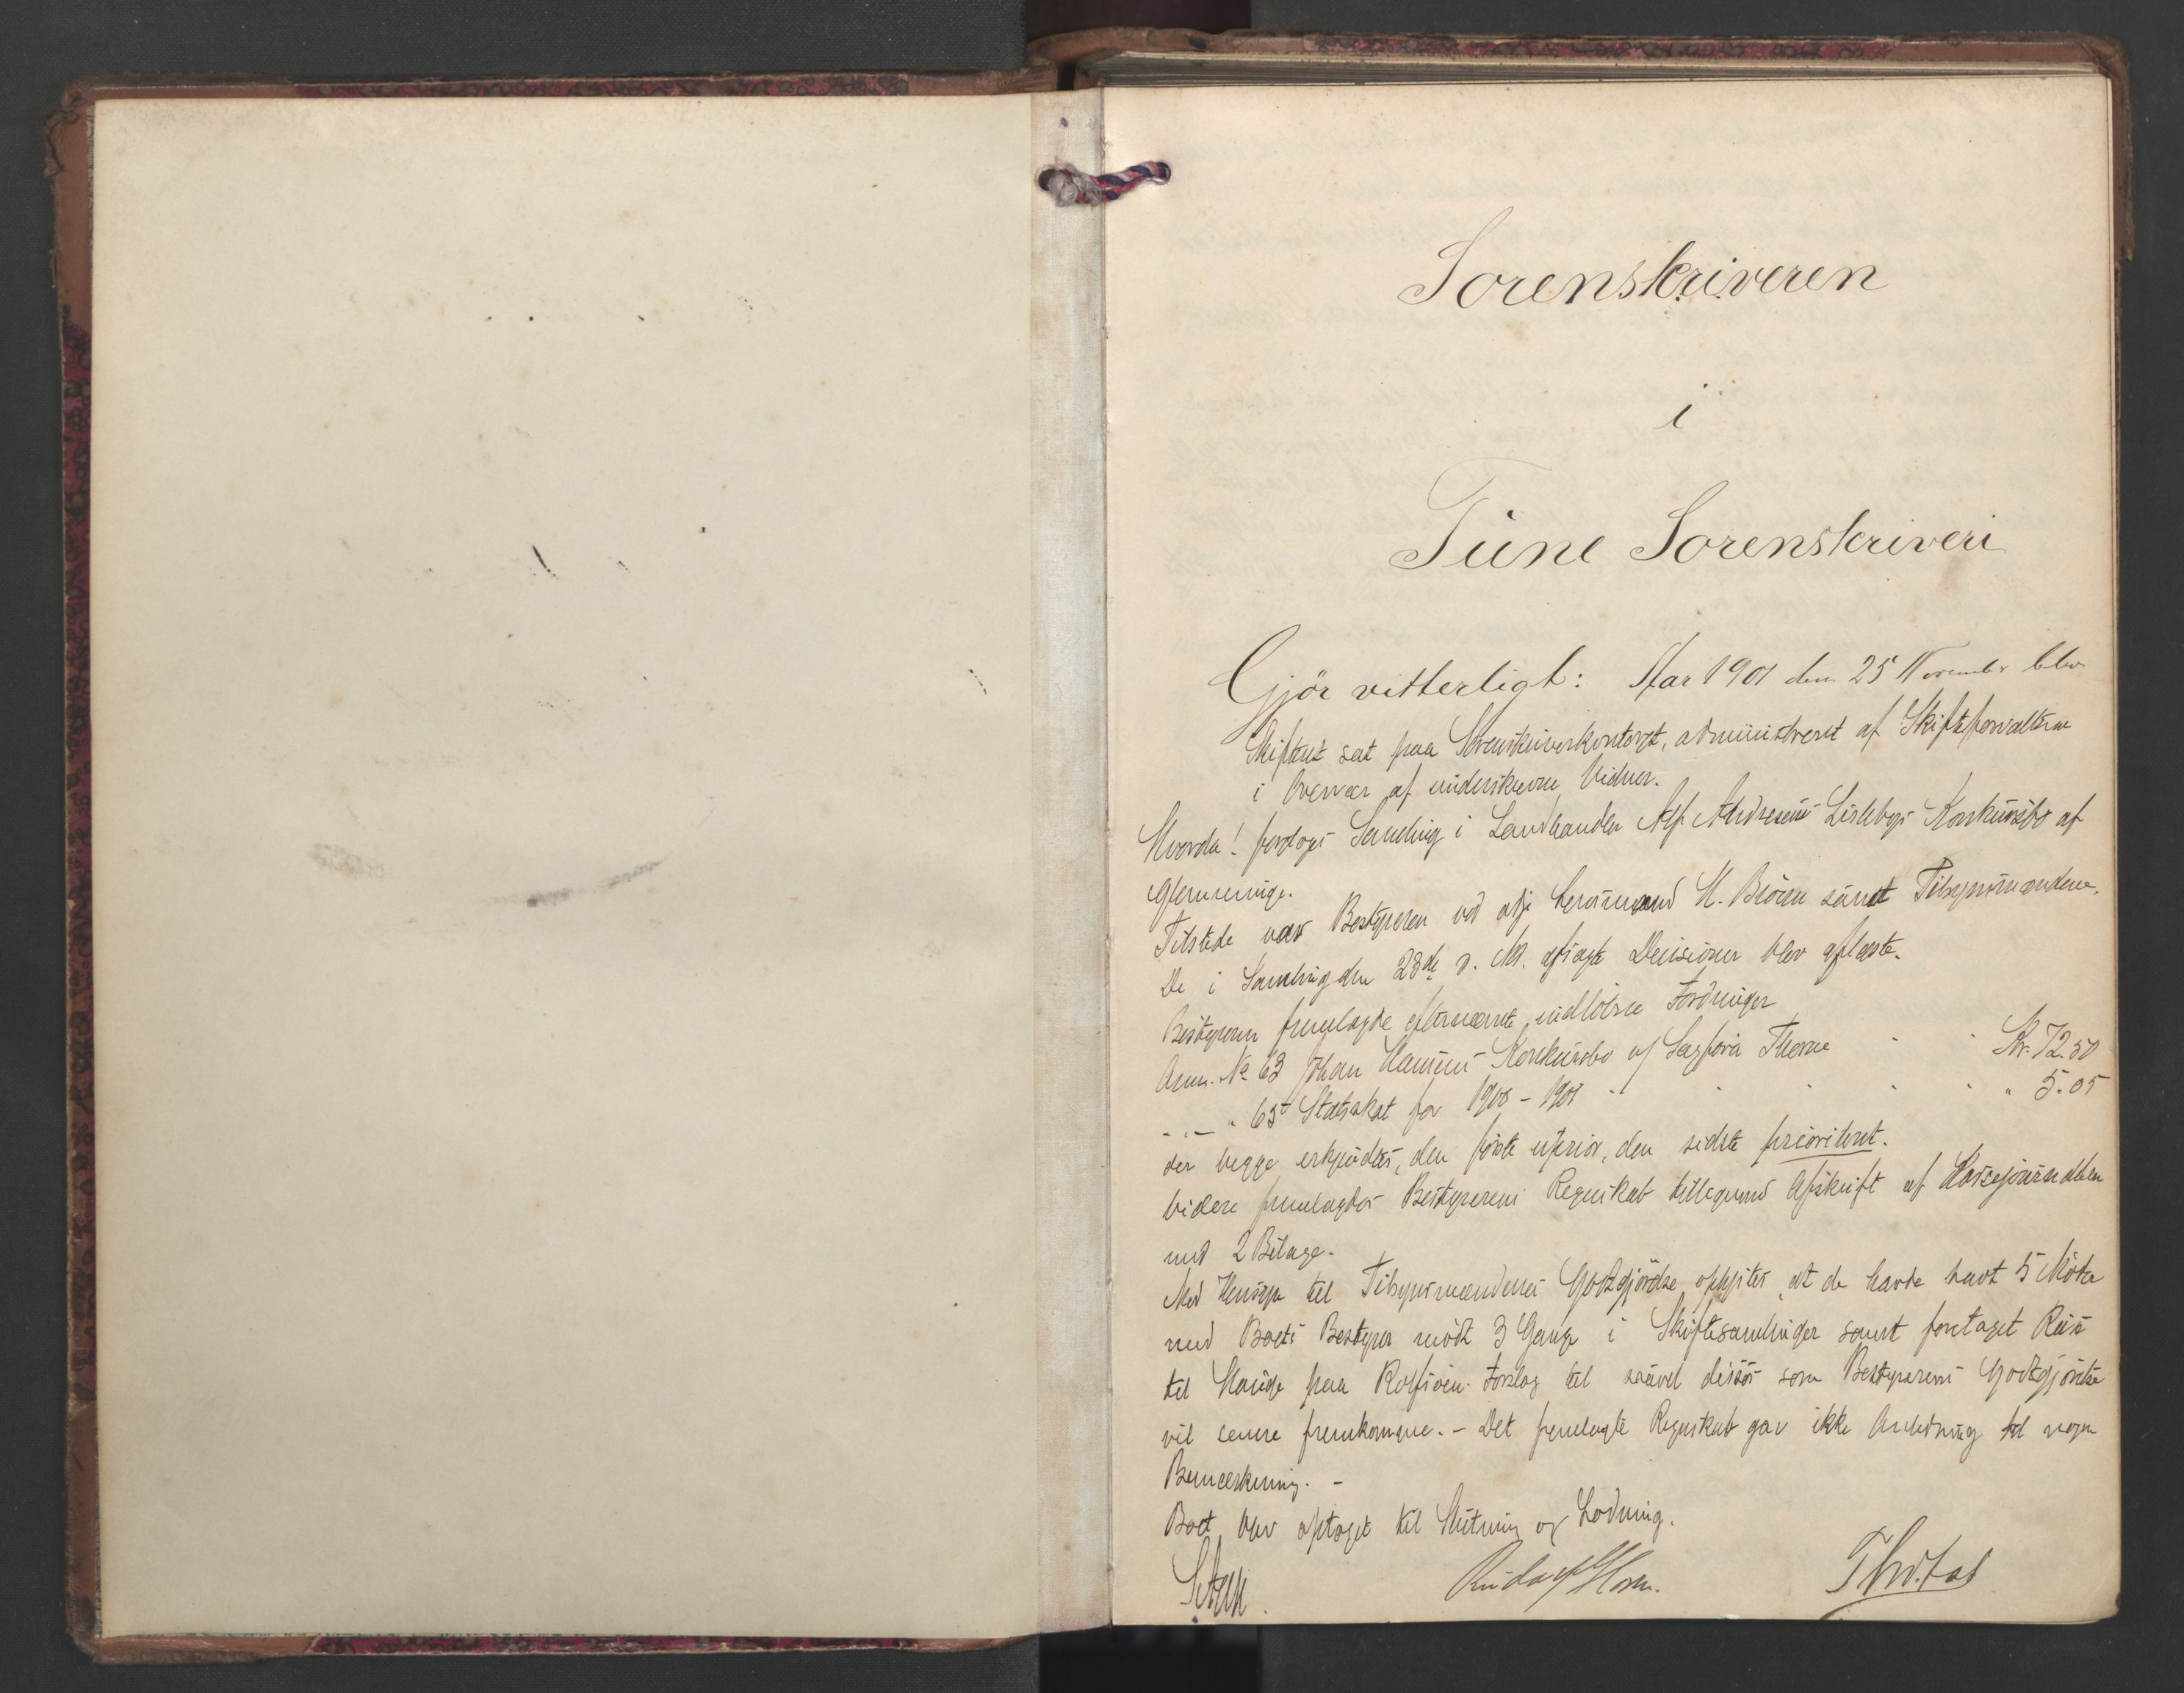 Sorenskriveren
i
Tune Sorenskriveri
Gjör vitterligt: Aar 1901 den 25 November blev
Skifteret sat paa Sorenskriverkontoret, administreret af Skifteforvalteren
i Overvær af underskrevne Vidner.
Hvorda! foretoges Samling i Landhandler Alf Andresens Lislebys Konkursbo af
Glemminge.
Tilstede var Bestyreren ved afg. Lensmand H. Bröen samt Tilsynsmændene.
De i Samling den 28de d. M. afsagte Decisioner blev aflæste.
Bestyreren fremlagde efternævnte indlöbne Fordringer
Anm. No 63 Johan Hansens Konkursbo af Sarpsborg Kr. 72.50
- " - " 65 Statsskat for 1900 - 1901 " 5.05
der begge erkjendtes, den förste uprior., den sidste prioriteret.
Videre fremlagdes Bestyrerens Regnskab tilligemed Afskrift af Kassejournalen
med 2 Bilage.
Med Hensyn til Tilsynsmændenes Godtgjörelse oplystes at de havde havt 5 Möter
med Boets Bestyrer mödt 3 Gange i Skiftesamlinger samt foretaget Reise
til Hauge paa Rolfsöen. Forslag til saavel disses som Bestyrerens Godtgjörelse
vil senere fremkomme. - Det fremlagte Regnskab gav ikke Anledning til nogen
Bemærkning. -
Boet blev optaget til Slutning og Lodning.
Rudolf Horn.